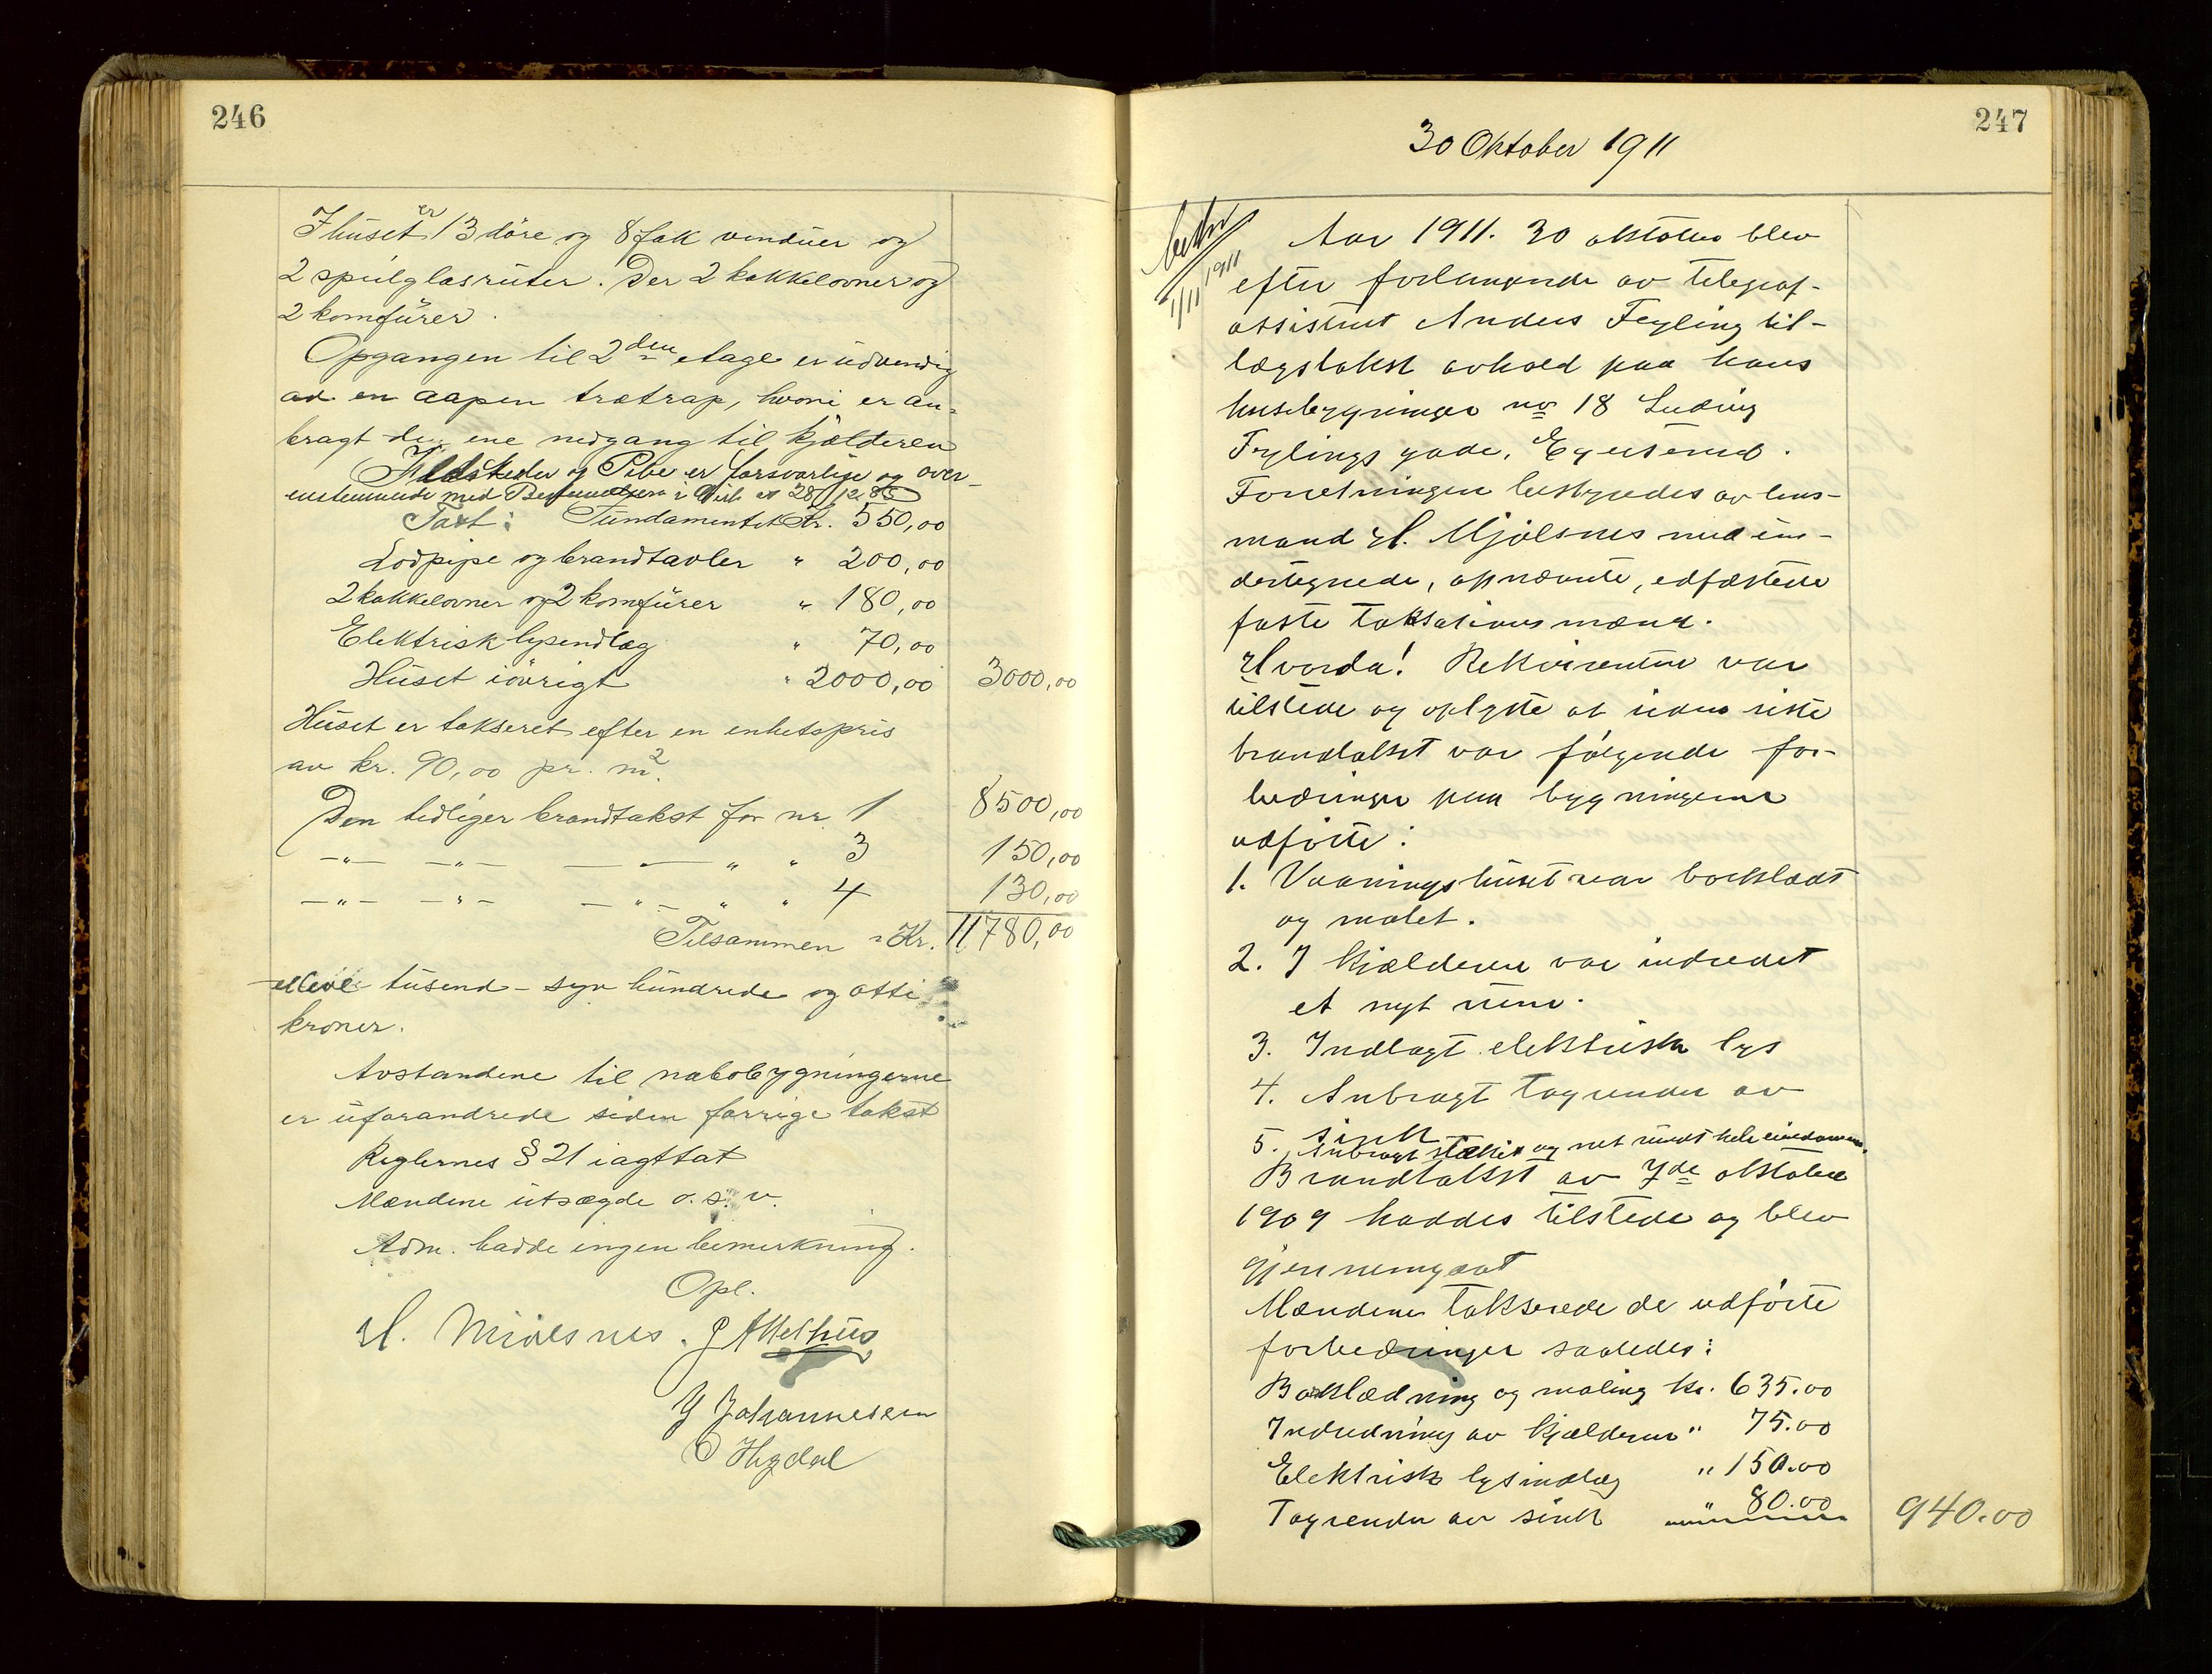 246
I huset er 13 döre og 8 fak vinduer og
2 speilglasruter. Der 2 kakkelovner og
2 komfürer.
Opgangen til 2den etage er udvendig
ad en aapen trætrap, hvori er an-
bragt den ene nedgang til kjælderen
Ildsteder og Pibe er forsvarlige og over-
enstemmende med Bestemmelsen i Cirk. av 28/12 85
Taxt: Fundamentet Kr. 550,00
Lodpipe og brandtavler " 200,00
2 kakkelovner og 2 komfürer " 180,00
Elektrisk lysindlæg " 70,00
Huset iövrigt " 2000,00 3000,00
Huset er takseret efter en enhetspris
av kr. 90,00 pr. m².
Den tidliger brandtakst for nr. 1 8500,00
—"— —"— — — " " 3 150,00
—"— —"— —"— " " 4 130,00
Tilsammen = Kr. 11780,00
elleve tusend - syv hundrede og otti
kroner.
Avstandene til nabobygningerne
er uforandrede siden forrige takst
Reglernes § 21 iagttat
Mændene utsagde o. s. v.
Adm. hadde ingen bemerkning.
Opl.
H. Mjölsnes. J A Melhus
G Johannesen
O Hegdal
247
30 Oktober 1911
1/11 1911
Aar 1911. 30 oktober blev
efter forlangende av telegraf-
assistent Anders Feyling til-
lægstakst avhold paa hans
husebygninger no 18 Ludvig
Feylings gade, Egersund.
Forretningen bestyredes av lens-
mand H. Mjölsnes med un-
dertegnede, opnævnte, edfæstede
faste taksationsmænd.
Hvorda! Rekvirenten var
tilstede og oplyste at siden siste
brandtakst var fölgende for-
bedringer paa bygningerne
udförte:
1. Vaaningshuset var bordklædt
og malet.
2. I kjælderen var indredet
et nyt rum.
3. Indlagt elektrisk lys
4. Anbragt tagrender av
sink
5. Anbragt stakit og net rundt hele eiendommen.
Brandtakst av 7de oktober
1909 haddes tilstede og blev
gjennemgaat
Mændene takserede de udförte
forbedringer saaledes:
Bordklædning og maling kr. 635.00
Indredning av kjælderen " 75.00
Elektrisk lysindlæg " 150.00
Tagrender av sink " 80.00 940.00